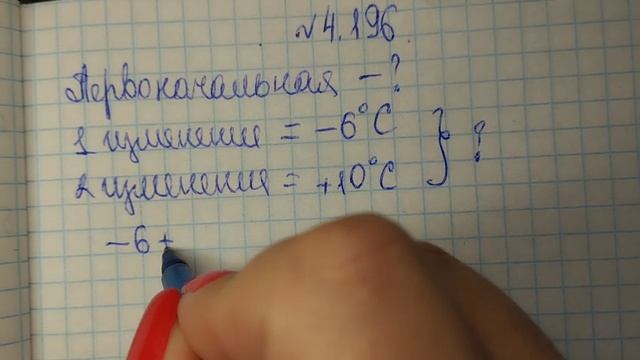 №4.196.
Первоначальная – ?
1 изменение = –6°C } ?
2 изменение = +10°C
–6 +